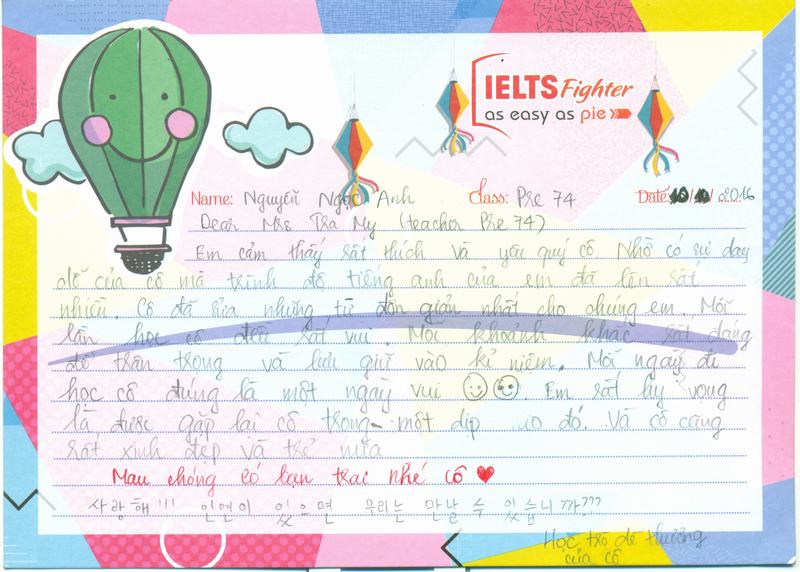 IELTS Fighter
as easy as pie
Name: Nguyễn Ngọc Anh Class: Pre 74 Date: 10/10/2016
Dear Mrs Tra My (teacher Pre 74)
Em cảm thấy rất thích và yêu quý cô. Nhờ có sự dạy
dỗ của cô mà trình độ tiếng anh của em đã lên rất
nhiều. Cô đã sửa những từ đơn giản nhất cho chúng em. Mỗi
lần học cô đều rất vui. Mỗi khoảnh khắc rất đáng
để trân trọng và lưu giữ vào kỉ niệm. Mỗi ngày đi
học cô đúng là một ngày vui. Em rất hy vọng
là được gặp lại cô trong một dịp nào đó. Và cô cũng
rất xinh đẹp và trẻ nữa
Mau chóng có bạn trai nhé cô ♥
사랑해!!! 인연이 있으면 우리는 만날 수 있습니까???
Học trò dễ thương
của cô